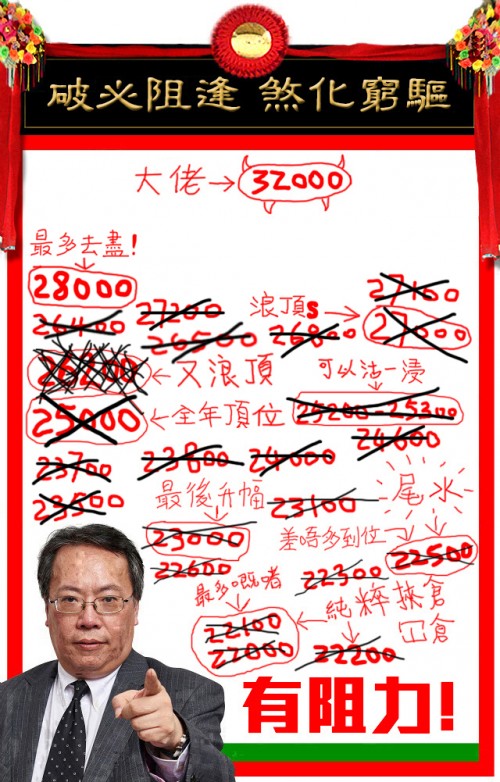 驅窮化煞 逢阻必破
大佬→32000
最多去盡!
28000
27100
27200
浪頂s→
26400
26500
26800
27000
26200
←又浪頂
可以沽一浸
25000
←全年頂位
25200-25300
24600
23700
23800
24000
23500
最後升幅
23100
尾水
23000
差唔多到位
22500
22600
22300
最多嘅啫
純粹挾倉
冚倉
22100
22000
22200
有阻力!